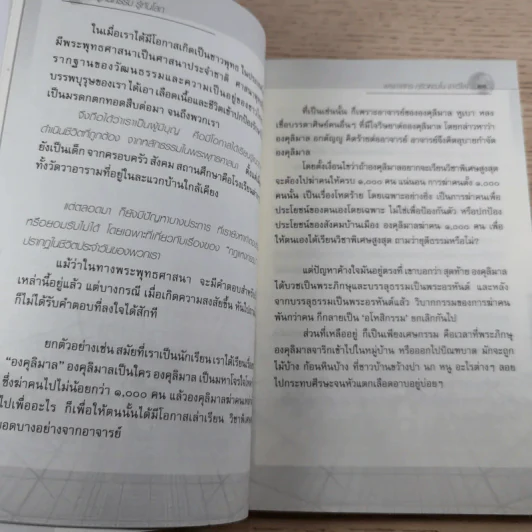 ในเมื่อเราได้มีโอกาสเกิดเป็นชาวพุทธ
มีพระพุทธศาสนาเป็นศาสนาประจำชาติ
รากฐานของวัฒนธรรมและความเป็นอยู่ของ
บรรพบุรุษของเราได้เอาเลือดเนื้อและชีวิตเข้าปกป้อง
เป็นมรดกตกทอดสืบต่อมา จนถึงพวกเรา
จึงถือได้ว่าเราเป็นผู้มีบุญ คือมีโอกาสได้เรียนรู้
ดำเนินชีวิตที่ถูกต้อง จากหลักธรรมในพระพุทธศาสนา ตั้งแต่
ยังเป็นเด็ก จากครอบครัว สังคม สถานศึกษาคือโรงเรียน
ทั้งวัดวาอารามที่อยู่ในละแวกบ้านใกล้เคียง
แต่ตลอดมา ก็ยังมีปัญหาบางประการ ที่เรายัง
หรือยอมรับไม่ได้ โดยเฉพาะที่เกี่ยวกับเรื่องของ "กฎแห่งกรรม"
ปรากฏในชีวิตประจำวันของพวกเรา
แม้ว่าในทางพระพุทธศาสนา จะมีคำตอบสำหรับ
เหล่านี้อยู่แล้ว แต่บางกรณี เมื่อเกิดความสงสัยขึ้น
ก็ไม่ได้รับคำตอบที่ลงใจได้สักที
ยกตัวอย่างเช่น สมัยที่เราเป็นนักเรียน เราได้เรียน
"องคุลิมาล" องคุลิมาลเป็นใคร องคุลิมาล เป็นมหาโจร
ซึ่งฆ่าคนไปไม่น้อยกว่า ๑,๐๐๐ คน แล้วองคุลิมาลฆ่าคน
ไปเพื่ออะไร ก็เพื่อให้ตนนั้นได้มีโอกาสเล่าเรียน วิชา
อดบางอย่างจากอาจารย์
ที่เป็นเช่นนั้น ก็เพราะอาจารย์ขององคุลิมาล หูเบา หลง
เชื่อบรรดาศิษย์คนอื่นๆ ที่มีใจริษยาต่อองคุลิมาล โดยกล่าวหาว่า
องคุลิมาล อกตัญญู คิดร้ายต่ออาจารย์ อาจารย์จึงคิดอุบายกำจัด
องคุลิมาล
โดยตั้งเงื่อนไขว่าถ้าองคุลิมาลอยากจะเรียนวิชาพิเศษสูงสุด
จะต้องไปฆ่าคนให้ครบ ๑,๐๐๐ คน แน่นอน การฆ่าคนตั้ง ๑,๐๐๐
คนนั้น เป็นเรื่องโหดร้าย โดยเฉพาะอย่างยิ่ง เป็นการฆ่าเพื่อ
ประโยชน์ของตนเองโดยเฉพาะ ไม่ใช่เพื่อป้องกันตัว หรือปกป้อง
ประโยชน์ของสังคมบ้านเมือง องคุลิมาลฆ่าคน ๑,๐๐๐ คน เพื่อ
ให้ตนเองได้เรียนวิชาพิเศษสูงสุด ถามว่ายุติธรรมหรือไม่?
แต่ปัญหาค้างใจมันอยู่ตรงที่ เขาบอกว่า สุดท้าย องคุลิมาล
ได้บวชเป็นพระภิกษุและบรรลุธรรมเป็นพระอรหันต์ และหลัง
จากบรรลุธรรมเป็นพระอรหันต์แล้ว วิบากกรรมของการฆ่าคน
พันกว่าคน ก็กลายเป็น "อโหสิกรรม" ยกเลิกกันไป
ส่วนที่เหลืออยู่ ก็เป็นเพียงเศษกรรม คือเวลาที่พระภิกษุ
องคุลิมาลจาริกเข้าไปในหมู่บ้าน หรือออกไปบิณฑบาต มักจะถูก
ไม้บ้าง ก้อนหินบ้าง ที่ชาวบ้านขว้างปา นก หนู อะไรต่างๆ ลอย
ไปกระทบศีรษะจนหัวแตกเลือดอาบอยู่บ่อยๆ